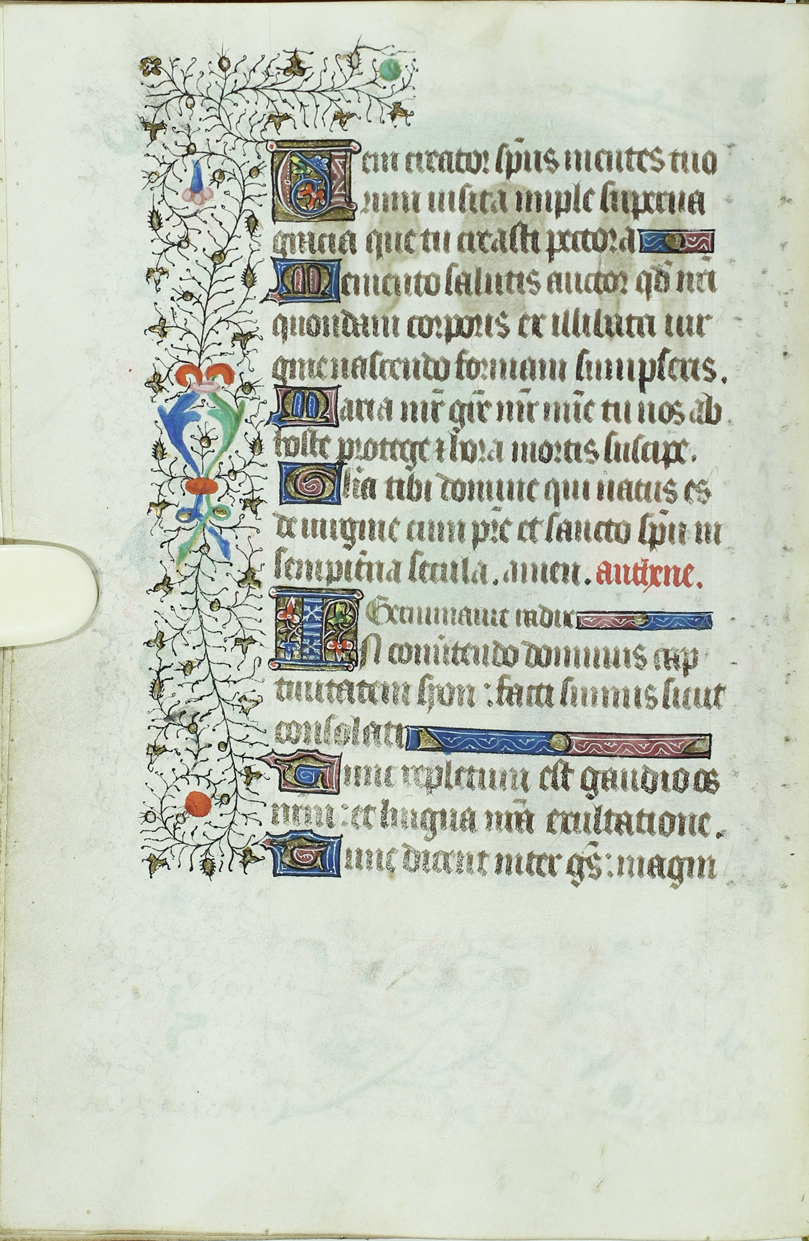 Ueni creator spūs mentes tuo
rum uisita imple superna
gracia que tu creasti pectora
Memento salutis auctor qđ nr̄i
quondam corporis ex illibata uir
gine nascendo formam sumpseris.
Maria mr̄ gr̄e mr̄ mīe tu nos ab
hoste protege ⁊ hora mortis suscipe.
Glīa tibi domine qui natus es
de uirgine cum pr̄e et sancto spū in
sempit̄na secula. amen. anthene.
Germinauit radix
IN conūtendo dominus cap
tiuitatem syon : facti sumus sicut
consolati
Tunc repletum est gaudio os
nrm̄ : et lingua nr̄a exultatione.
Tunc dicent inter gs̄ : magni